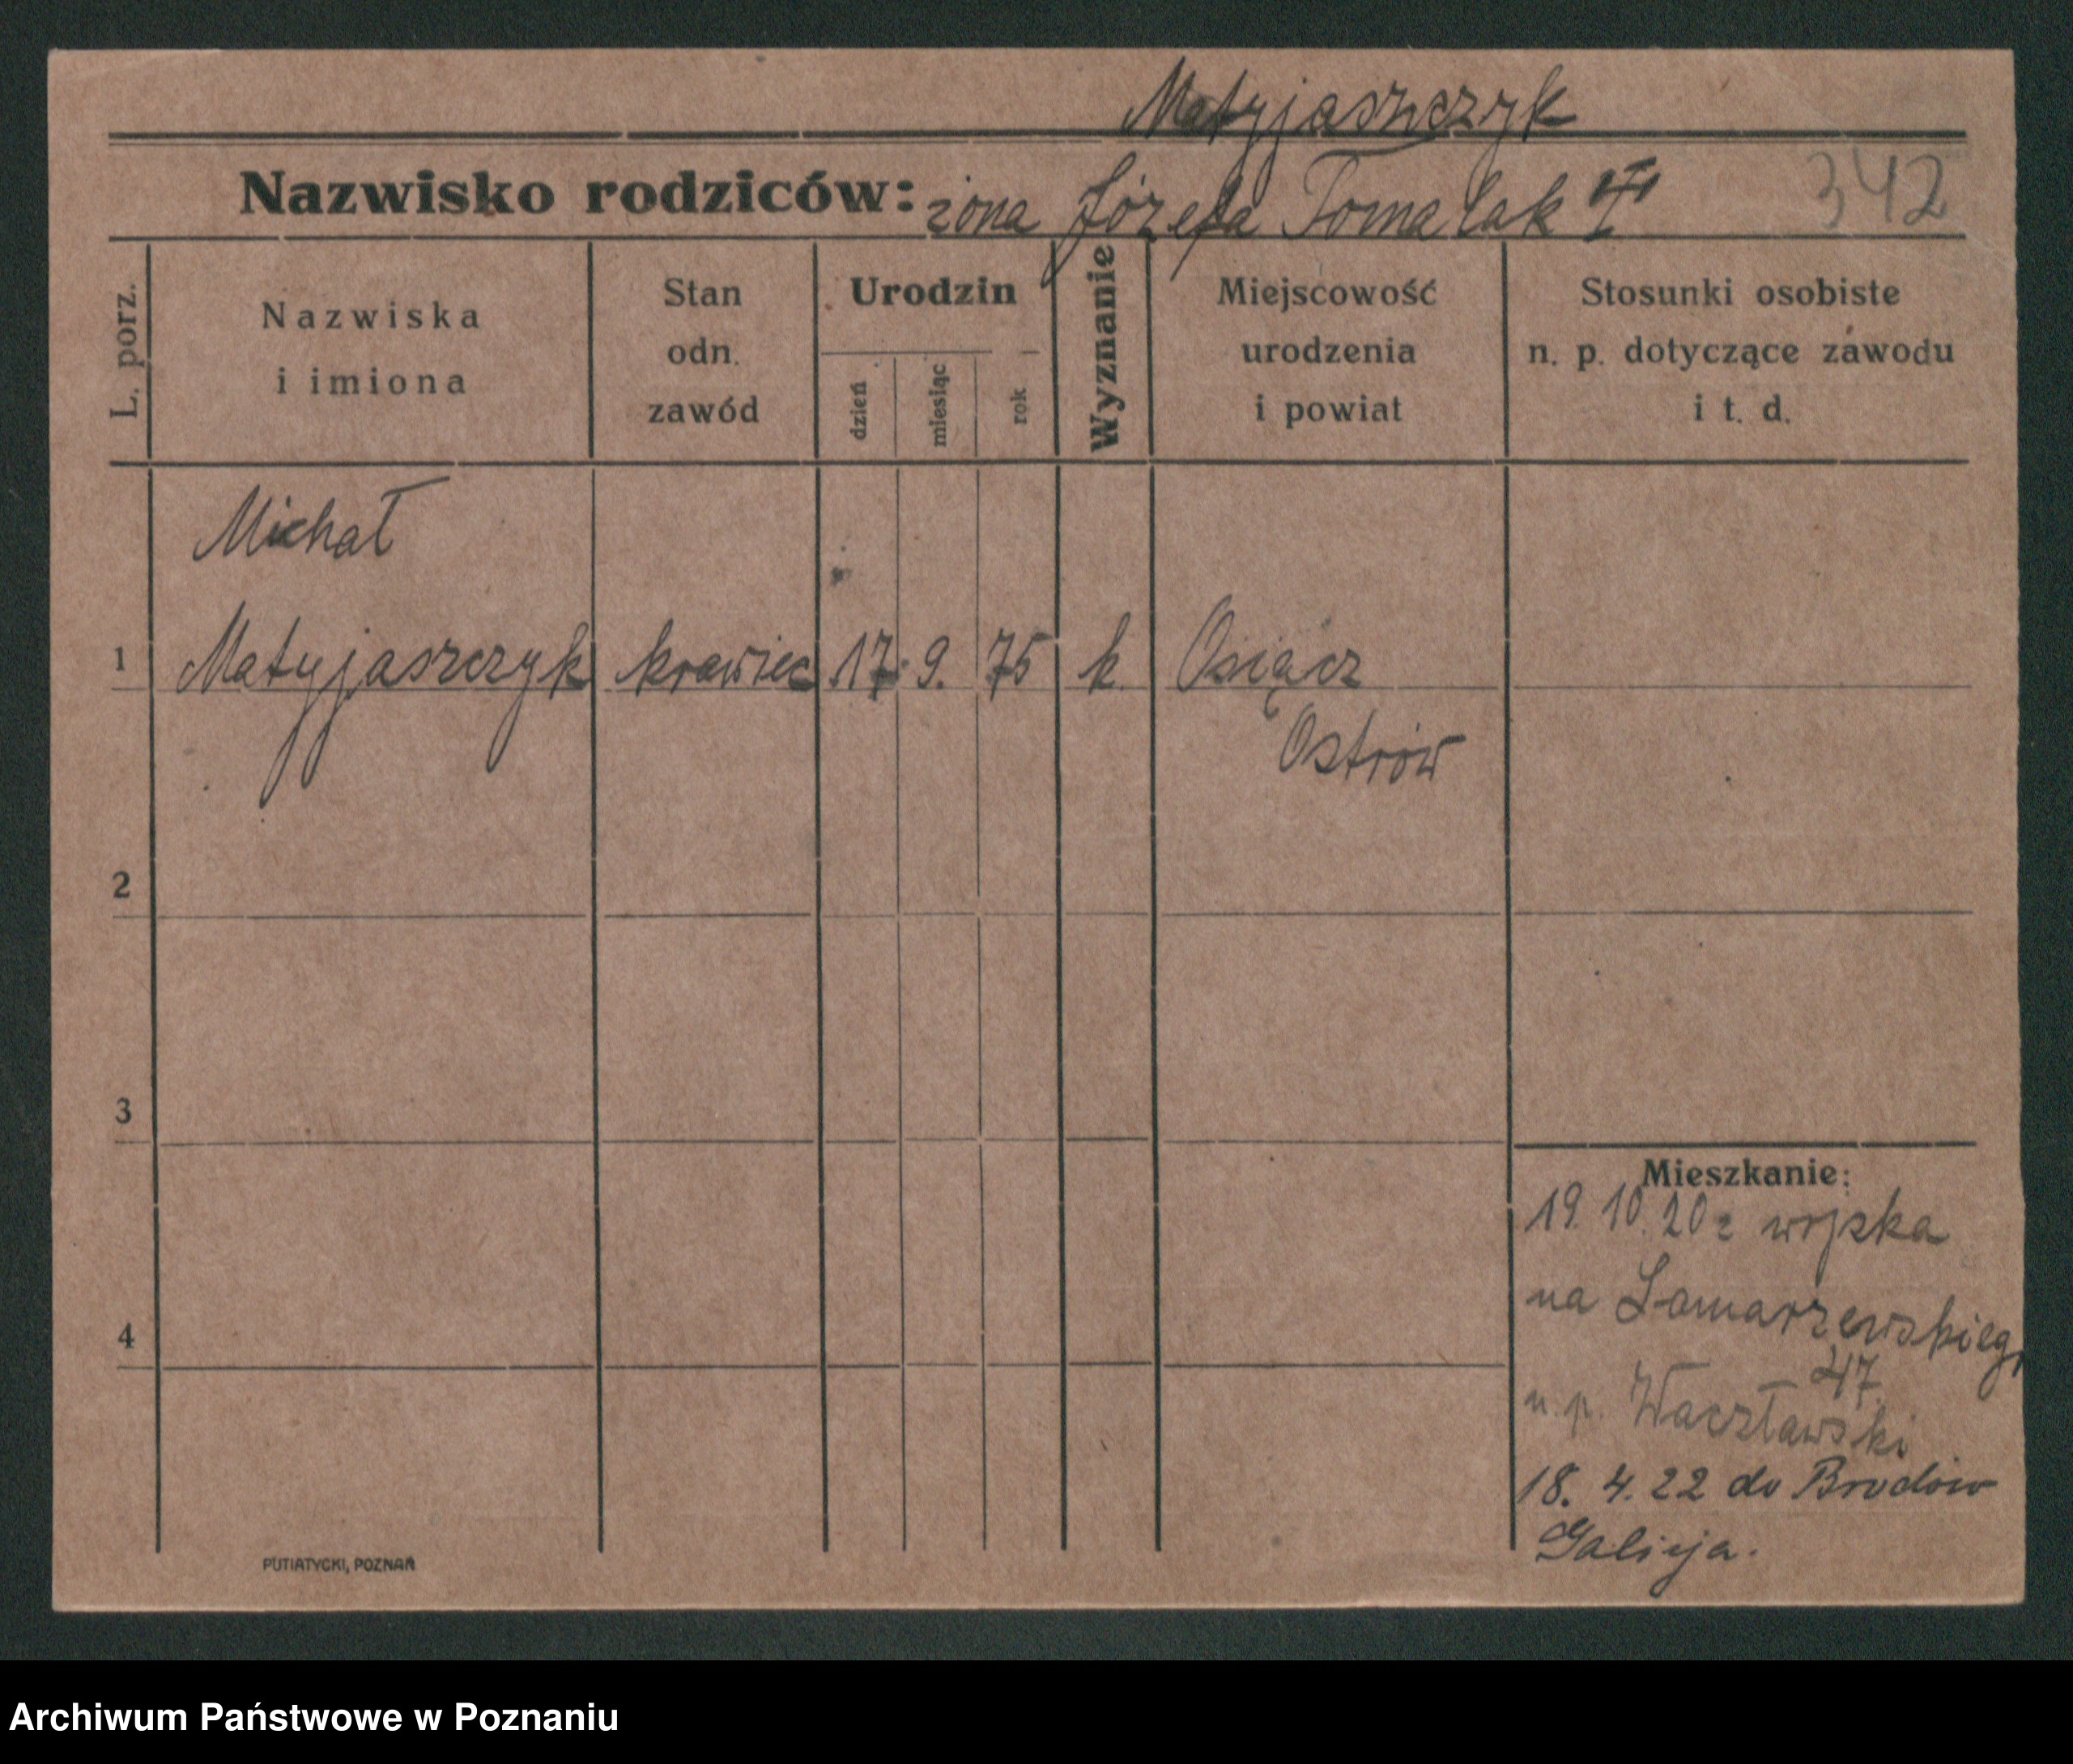 Matyjaszczyk
Nazwisko rodziców: żona Józefa Tomalak II
342
L. porz.
Nazwiska
i imiona
Stan
odn.
zawód
Urodzin
dzień
miesiąc
rok
Wyznanie
Miejscowość
urodzenia
i powiat
Stosunki osobiste
n. p. dotyczące zawodu
i t. d.
Michał
1 Matyjaszczyk krawiec 17. 9. 75 k. Osiącz
Ostrów
2
3
4
Mieszkanie:
19. 10. 20 z wojska
na Łomarzewskieg
47
u. p. Wacztawski
18. 4. 22 do Brodów
Galicja.
PUTIATYCKI, POZNAŃ
Archiwum Państwowe w Poznaniu